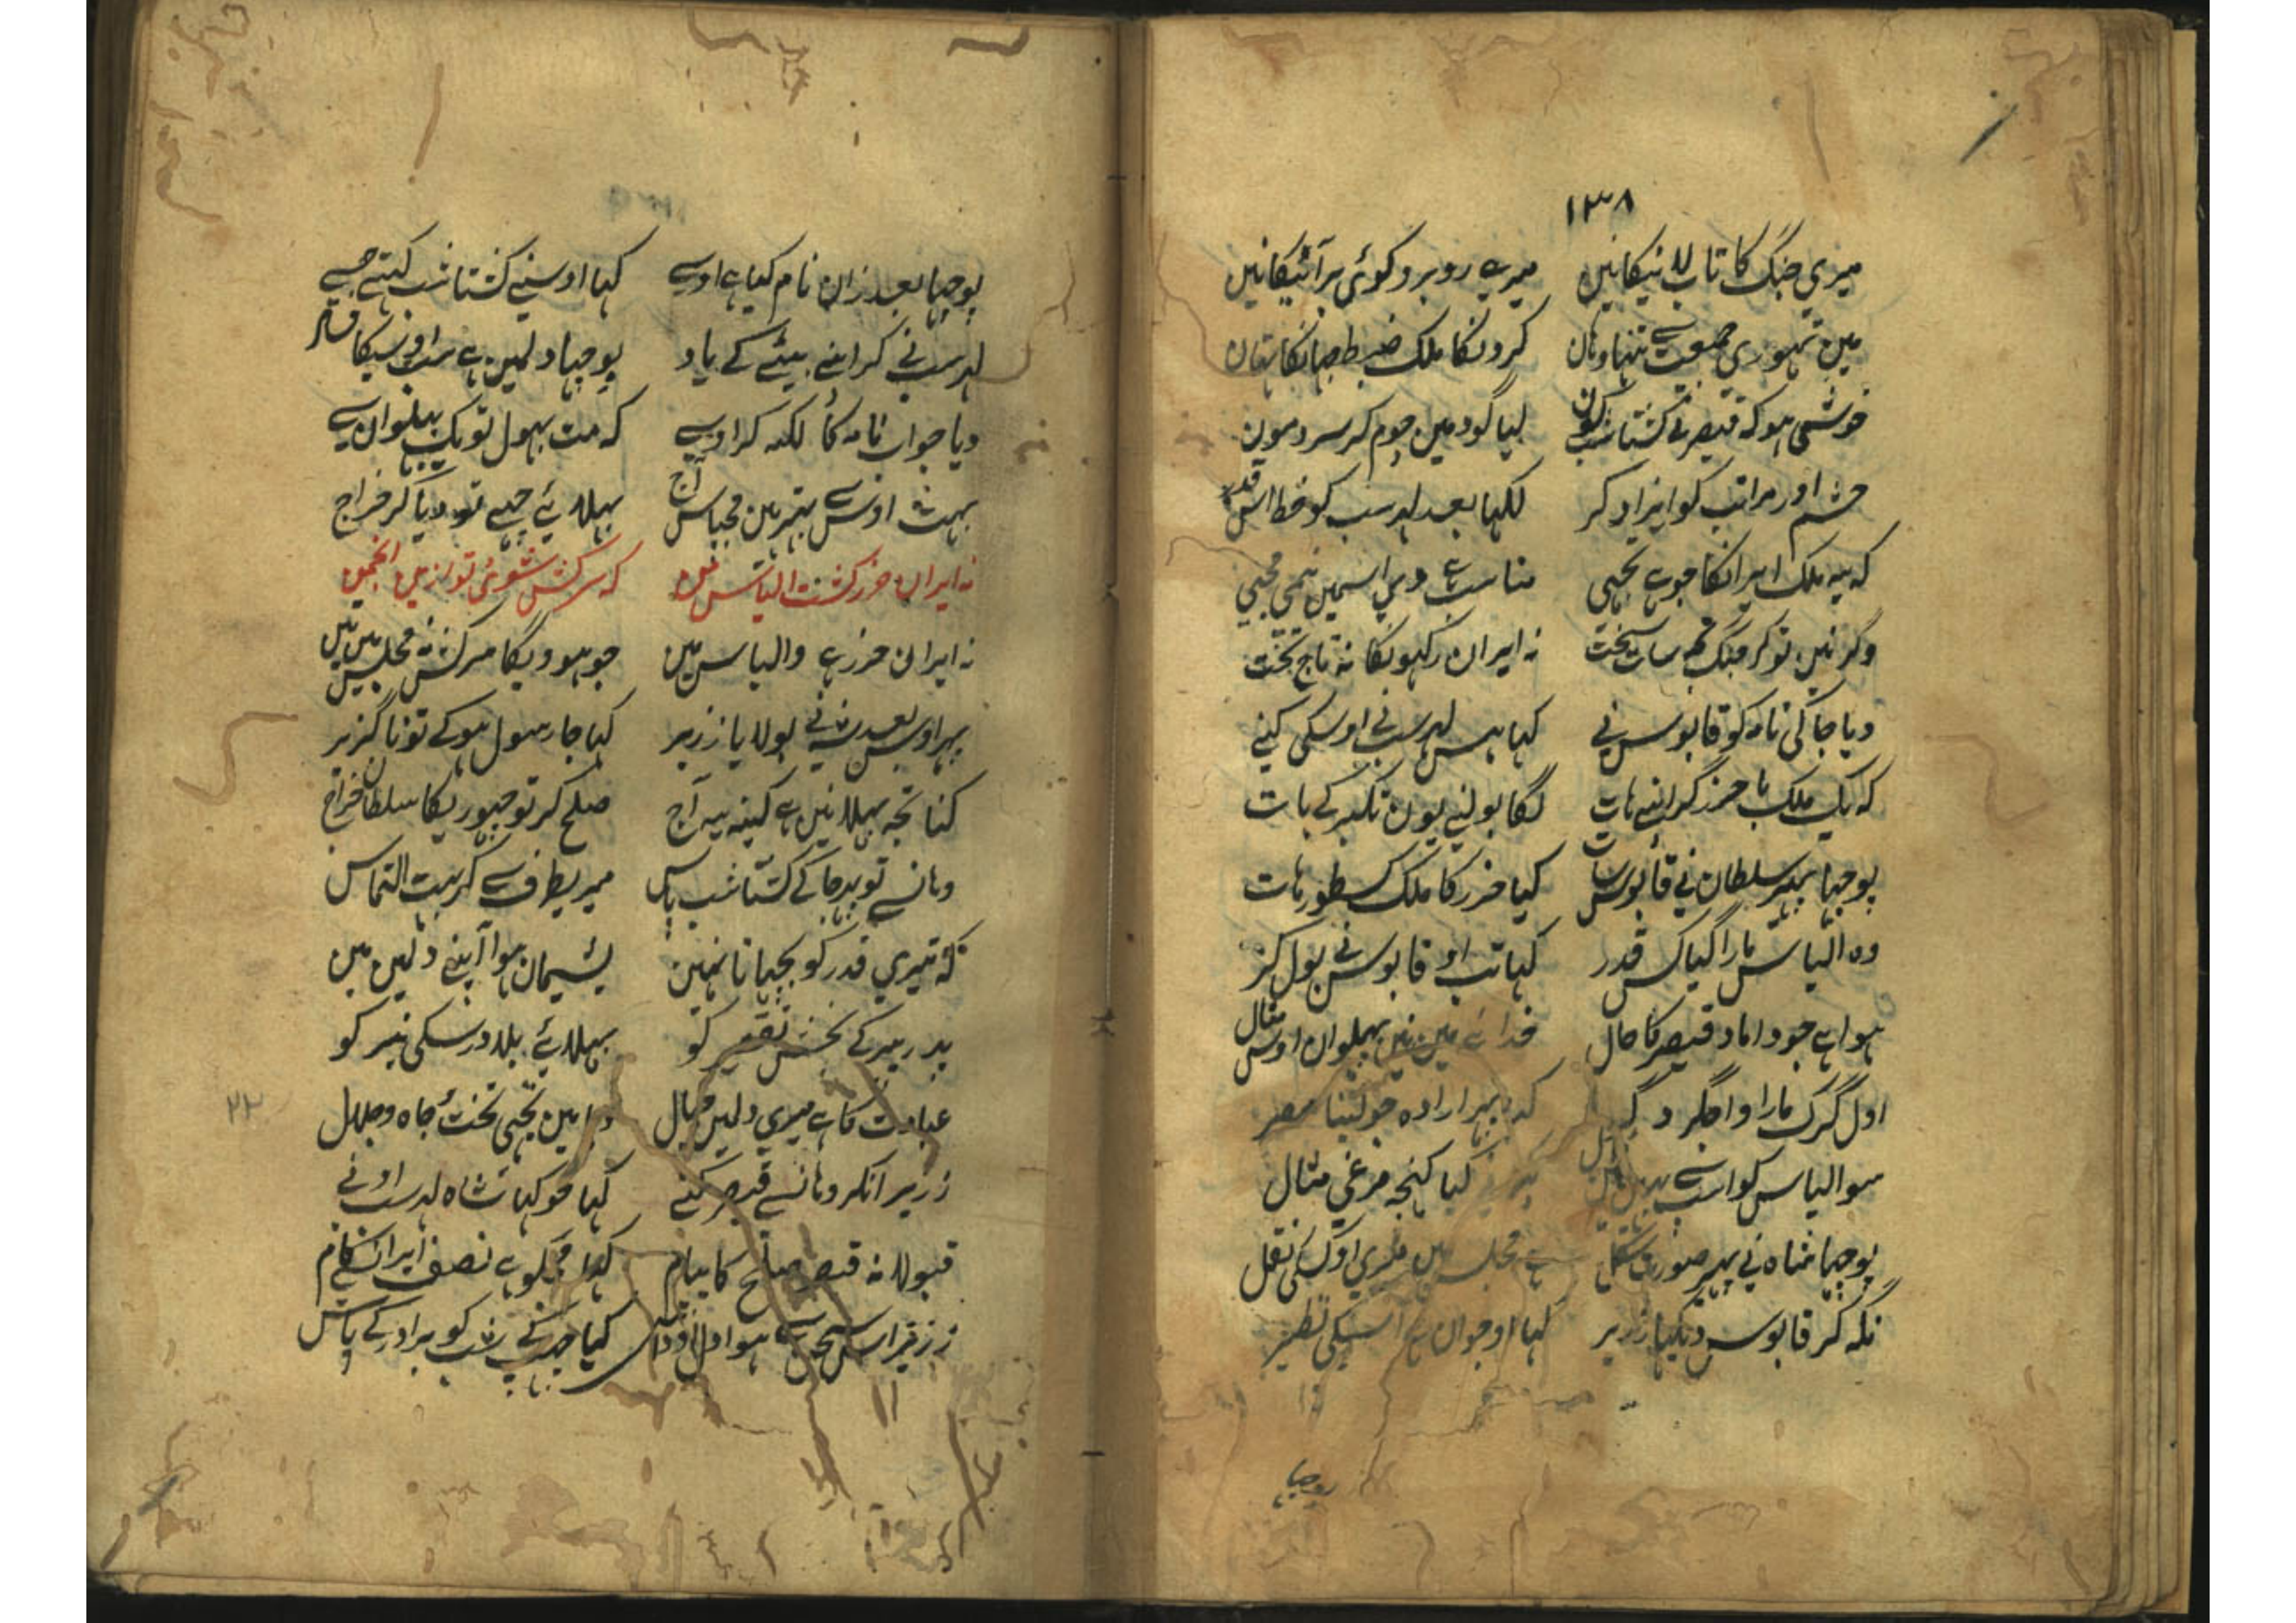 ١٣٨
میری جنگ کا تاب لا نیکا نیں میرے روبرو کوئی بر آئیکا نیں
میں تہوری جمعیت سے تنہا وہاں کرونگا ملک ضبط جہانکا تہاں
خوشی ہو کہ قیصر نے گشتاسب کون لیا گود میں چوم کر سر و مون
حشم اور مراتب کو ایزاد کر لکہا بعد لہرسب کو خط اس قدر
کہ یہ ملک ایرانکا جو ہے تجہی مناسب ہے دیی اسمیں نیمی مجہی
وگر نیں تو کر جنگ مجہ سات سخت نہ ایران رکہونکا نہ تاج تخت
دیا جا کی نامہ کو قابوس نے کہا ہنس لہرسب نے اوسکی کنے
کہ یک ملک پا خزر کر اپنے ہات لگا بولنے یون تکبر کے بات
پوچہا پہر سلطان نے قابوس سات کیا خزر کا ملک کسطور ہات
وہ الیاس مارا گیا کس قدر کہا تب او قابوس نے بول کر
ہوا ہے جو داماد قیصر کا حال خدائے میں نیں پہلوان اوس مثال
اول گرگ مارا و اجگر دگر کہ پہر ارادہ جو لینا مصر
سو الیاس کو اسنے کیا کنجہ مرغی مثال
پوچہا شاہ نے پہر صورت شکل ہے مجلس میں میری او کس کی نقل
نگہ کر قابوس دیکہا زریر کہا او جوان ہے اسیکی نظیر
پوچہا
پوچہا بعد زان نام کیا ہے اوسے کہا اوسنے گشتاشب کہتے جسے
لہرسب نے کر اپنے بیٹے کے یاد پوچہا دلمیں ہے سب اوسیکا فساد
دیا جواب نامہ کا لکہہ کر اوسے کہ مت بہول تو یک پہلوان سے
بہت اوس سے بہتر ہیں مجہ پاس آج بہلائے جسے تو دیا کر خراج
نہ ایران خزر گشت الیاس من کہ سرکش شوئی تو ازیں انجمن
نہ ایران خزر ہے و الیاس میں جو ہوویگا سرکش نہ مجلس میں تیں
پہر اوس بعد شہ نے بولایا زریر کہا جا رسول ہو کے تو ناگزیر
کنا تجہ بہلا نیں ہے کینہ یہ آج صلح کر تو چہوڑیگا سلطان خراج
وہانسے تو پہر جا کے گشتاشب پاس میریطرف سے کر بہت التماس
کہ تیری قدر کو پچہانا نہیں پشیمان ہوا اپنے دلمیں میں
پدر پیر کے بخش تقصیر کو بہلائے بلا درسکی نیر کو
عبادت کا ہے میری دلمیں خیال دیا میں تجہی تخت جاہ و جلال
زریر آنکر وہانسے قیصر کنے کہا جو کہا تہا شاہ لہرسب اونے
قبولا نہ قیصر صلح کا پیام کہا مجکو ہے نصف ایران سے کام
زریر اس سخن سے ہوا دل اوداس گیا چہپ کے شب کو برادر کے پاس
٢٢